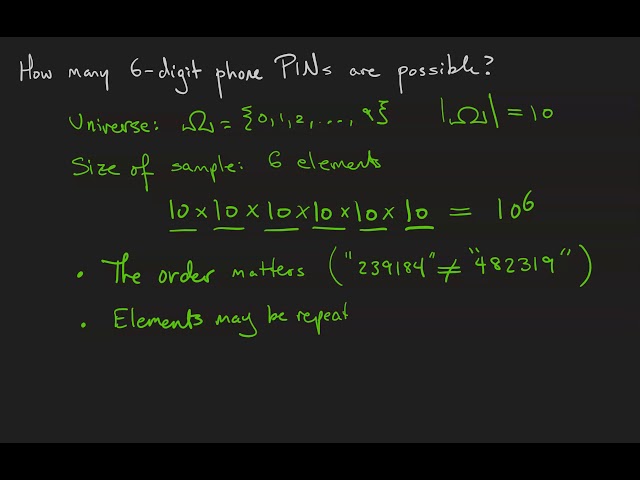 How many 6-digit phone PINs are possible?
Universe: Ω = {0,1,2,...,9} |Ω| = 10
Size of sample: 6 elements
10 × 10 × 10 × 10 × 10 × 10 = 10⁶
• The order matters ("239184" ≠ "482319")
• Elements may be repeat